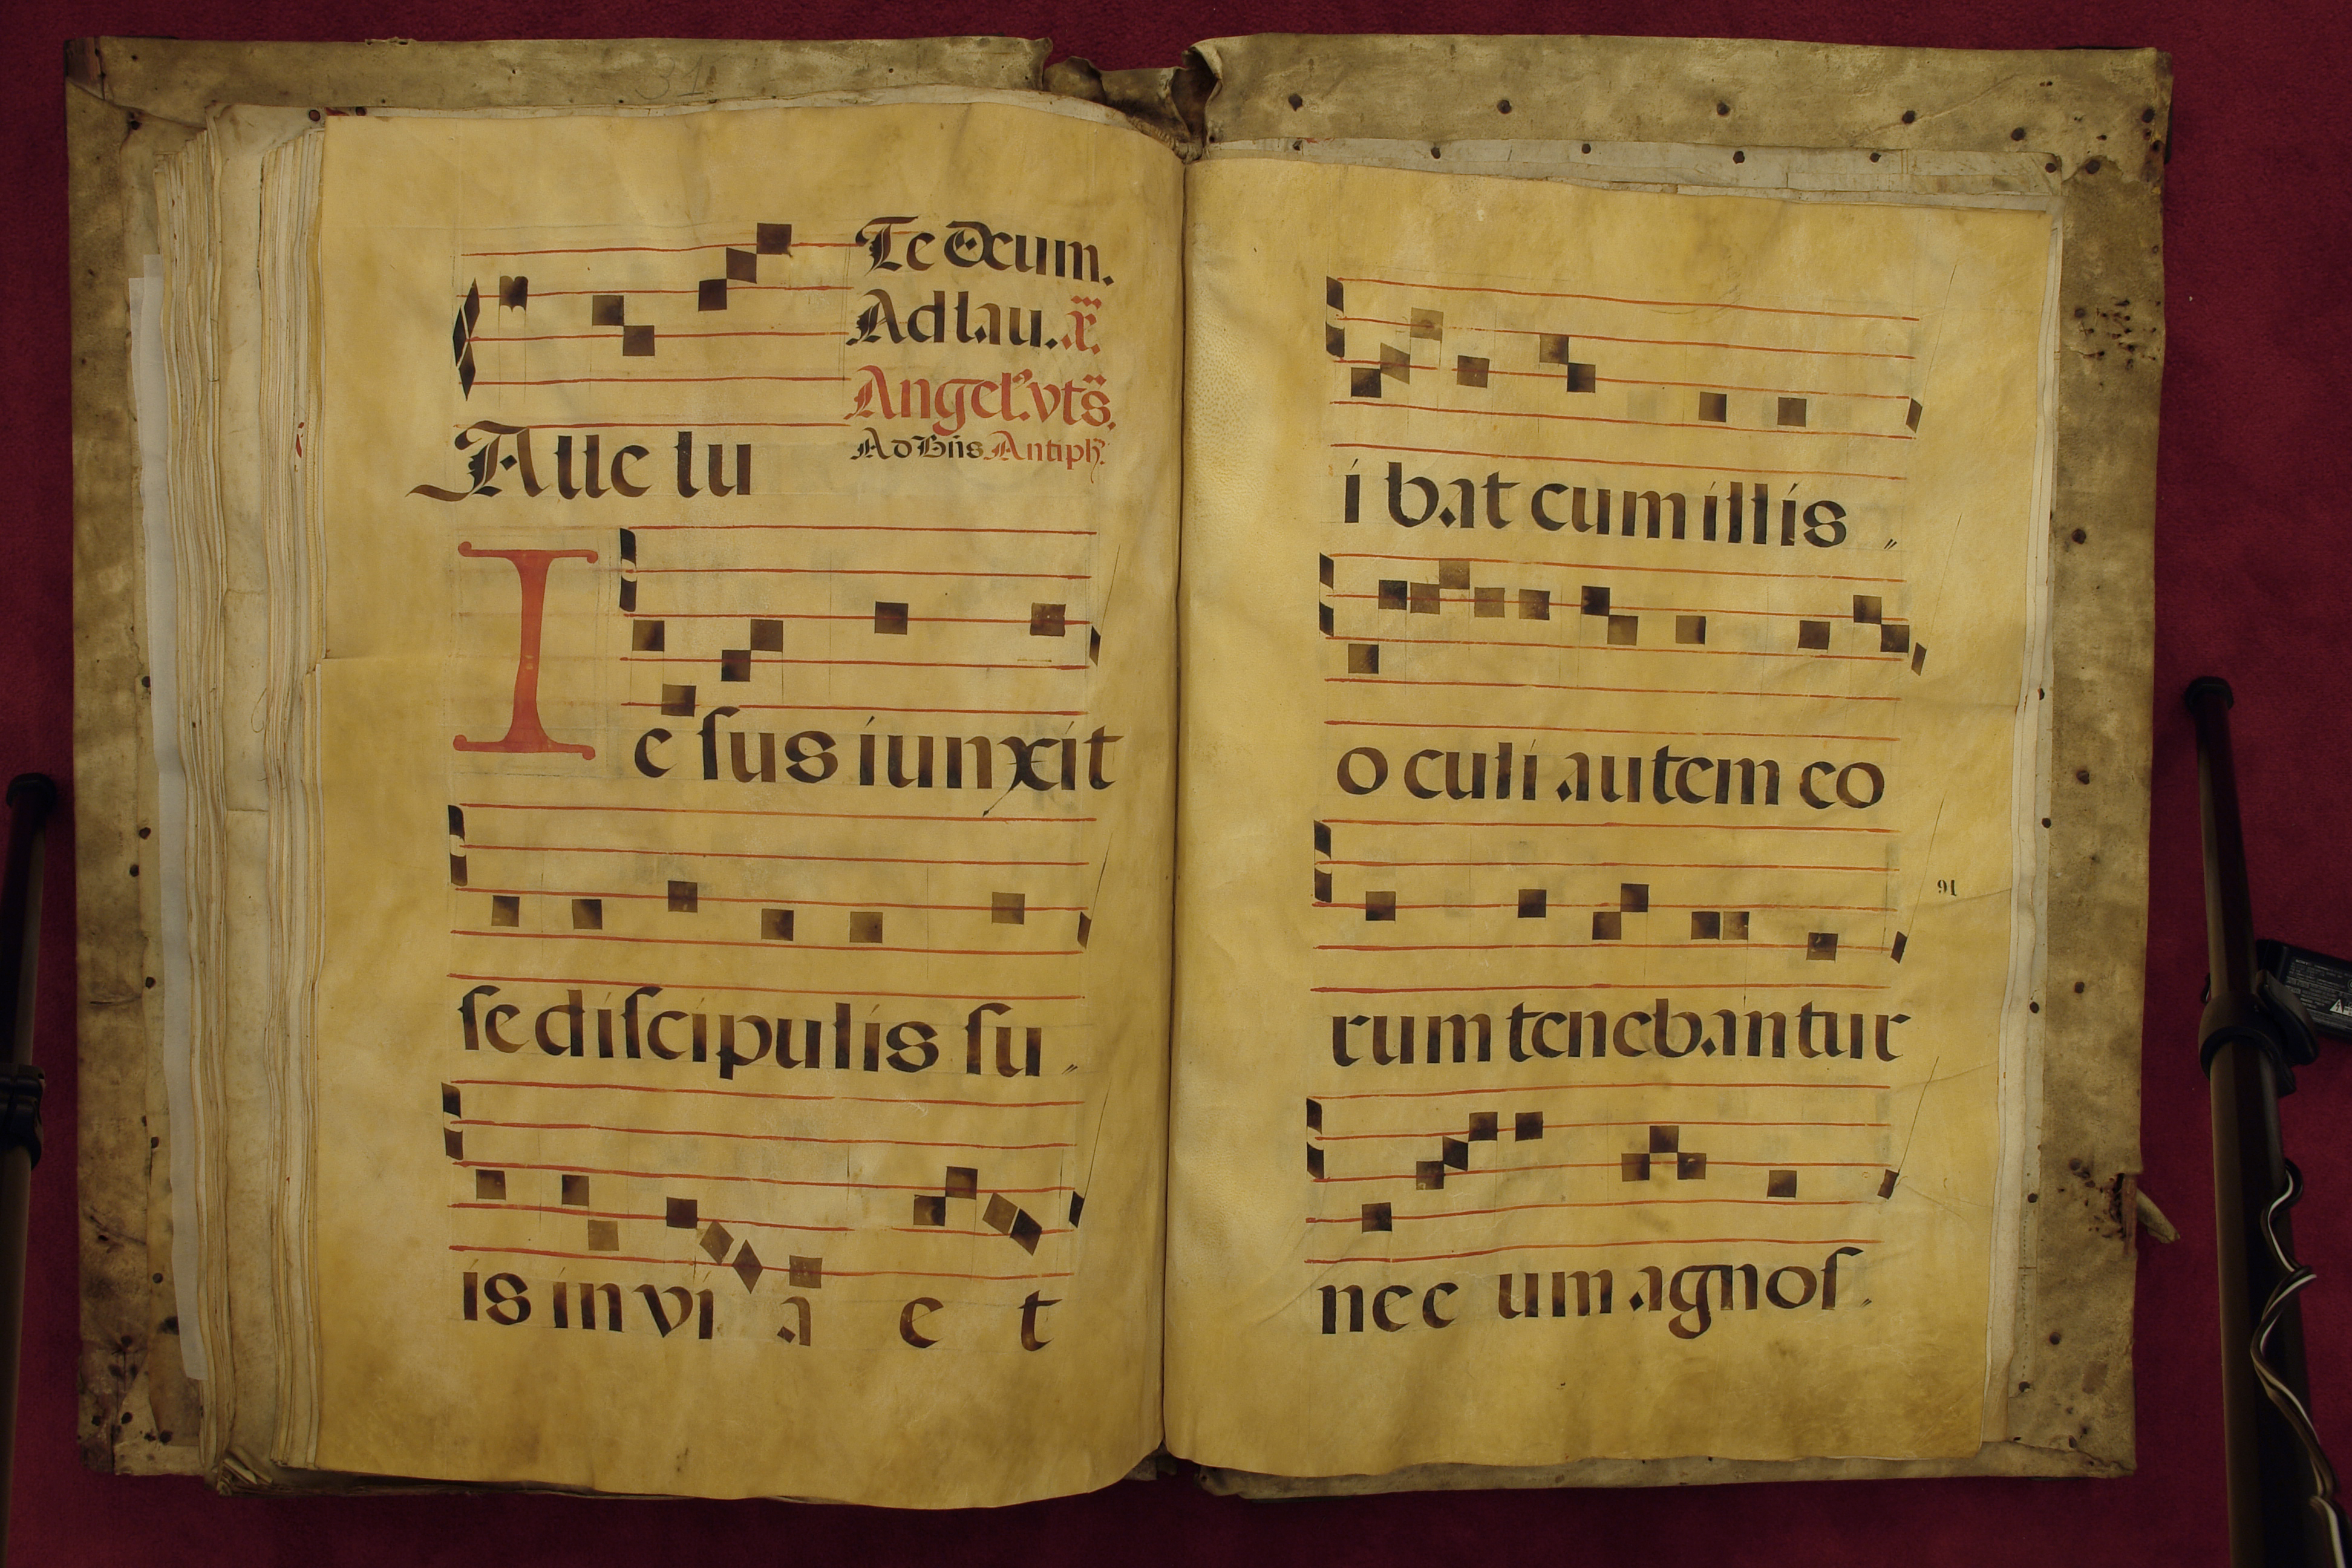 Te Decum.
Ad lau. ℟.
Angel'. vts.
Alle lu
Ad Bñs Antiph.
I
e ſus iunxit
ſe diſcipulis ſu „
is in vi a e t
i bat cum illis „
o culi autem eo
16
rum tenebantur
ne e um agnoſ „